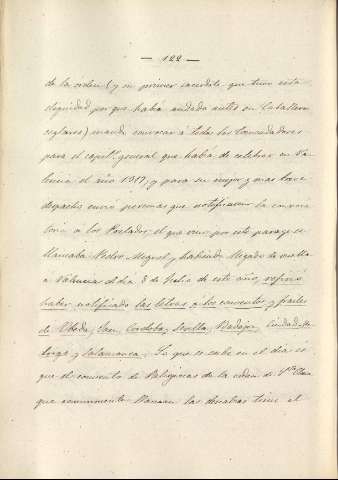 — 122 —
de la orden (y su primer sacerdote que tuvo esta
dignidad porque había andado antes en Caballeros
seglares) mandó convocar a todos los Comendadores
para el capto. general que había de celebrar en Va-
lencia el año 1317, y para su mejor y mas breve
despacho envió personas que notificasen la convoca-
toria a los Prelados, el que vino por este parage se
llamaba Pedro Miguel y habiendo llegado de vuelta
a Valencia el día 8 de Julio de este año, refirió
haber notificado las letras a los conventos y frailes
de Ubeda, Jaen, Cordoba, Sevilla, Badajoz, Ciudad Ro-
drigo y Salamanca. Lo que se sabe en el día es
que el convento de Religiosas de la orden de Sta. Clara
que comunmente llaman las tiene el